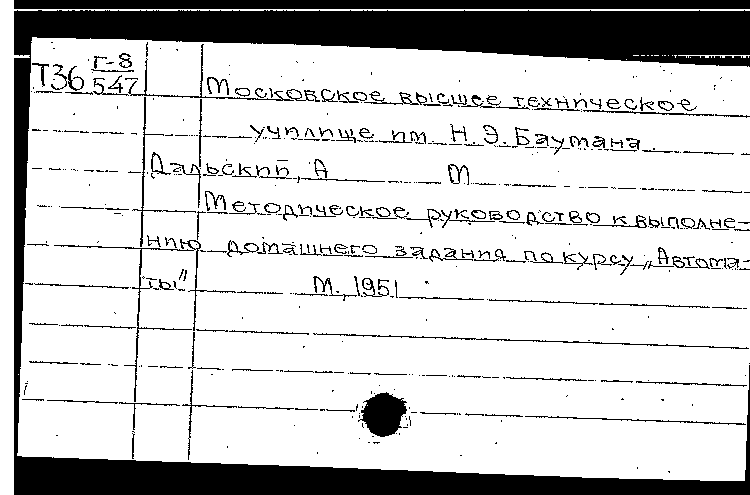 Т36 Г-8/547
Московское высшее техническое
училище им. Н.Э.Баумана.
Дальский, А М
Методическое руководство к выполне-
нию домашнего задания по курсу „Автома-
ты"
М., 1951